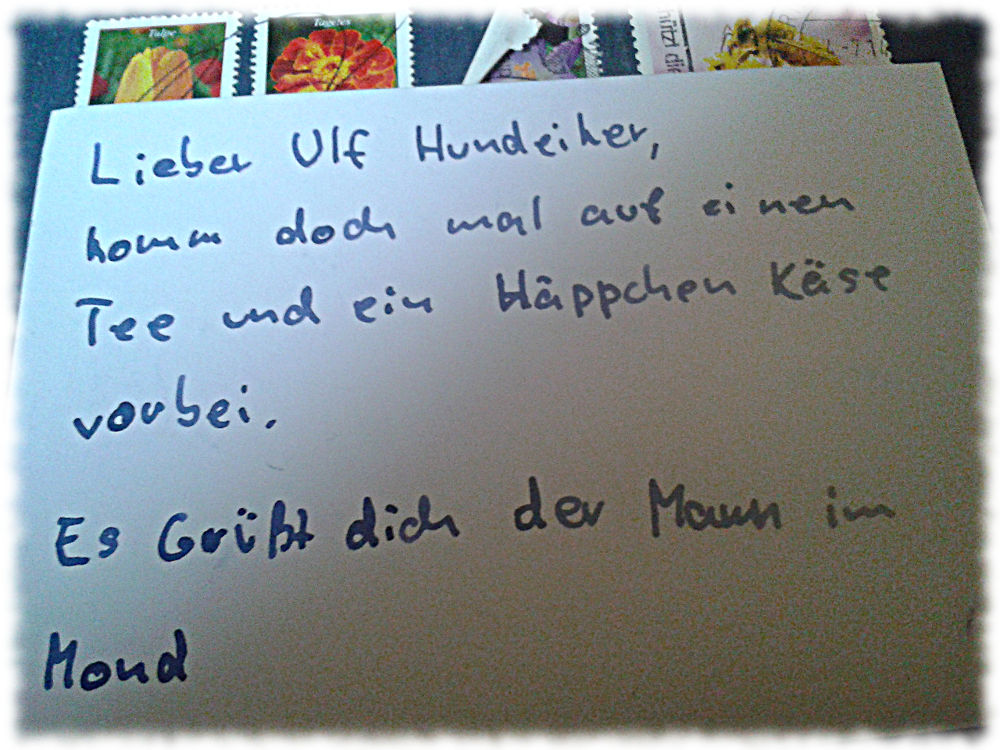 Tulpe
Tagetes
Lieber Ulf Hundeiker,
komm doch mal auf einen
Tee und ein Häppchen Käse
vorbei.
Es Grüßt dich der Mann im
Mond